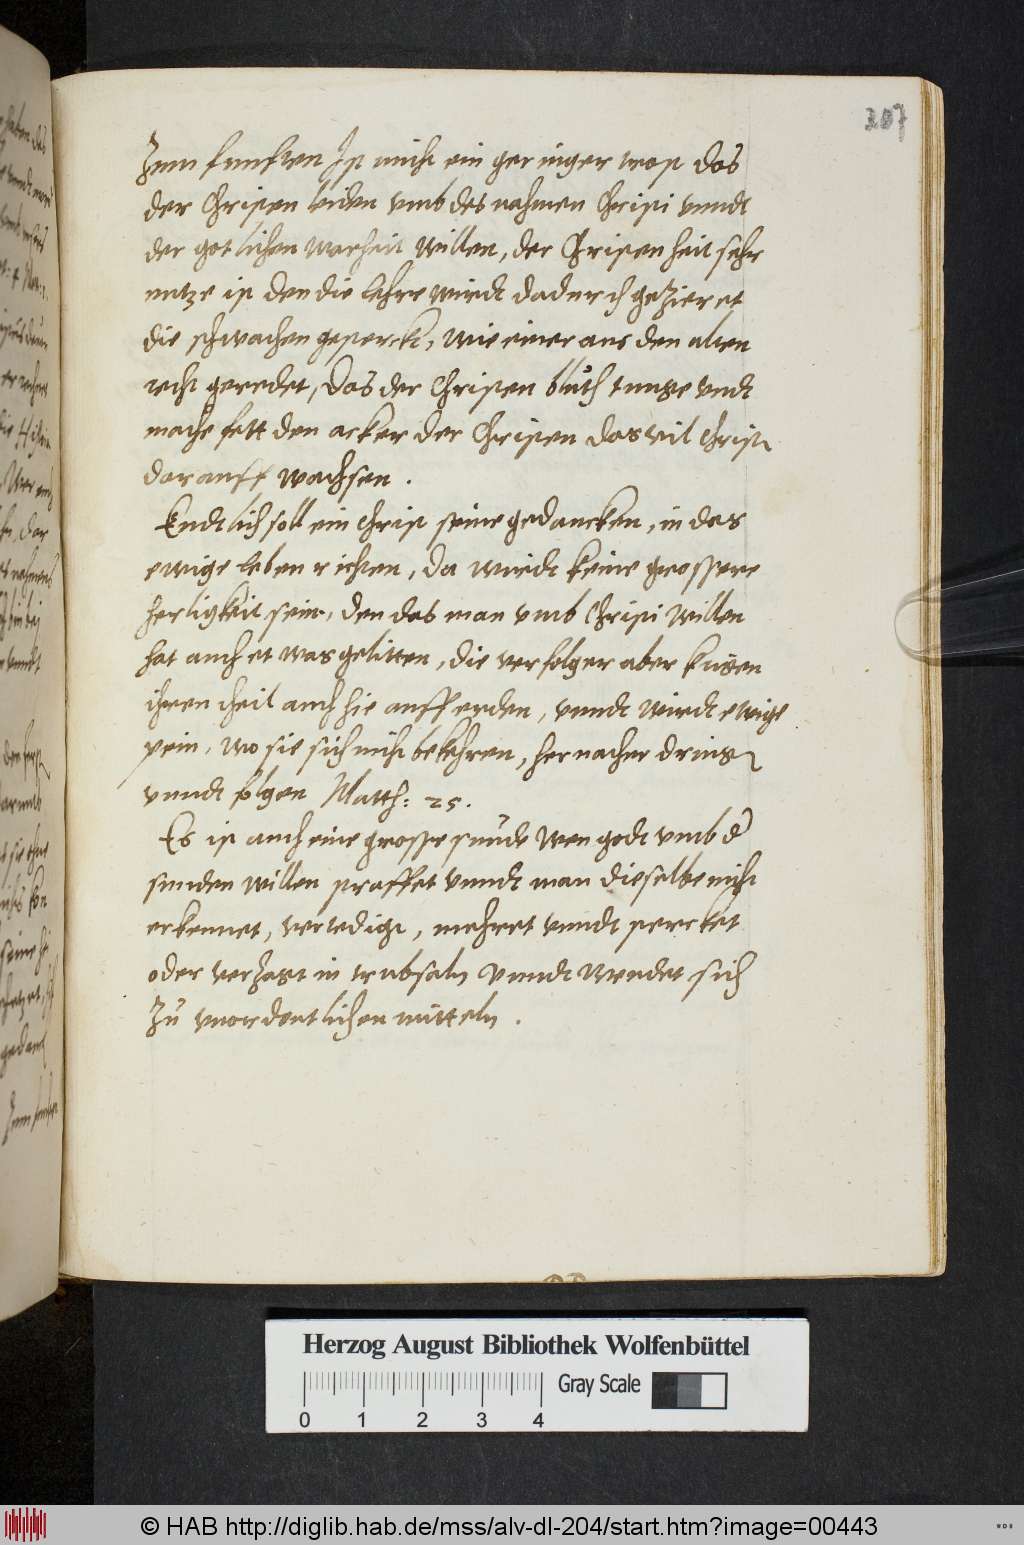 207
Zum funften Ist nicht ein geringer trost das
der Christen leiden vmb des nahmen Christi vnndt
der gotlichen warheit willen, der Christenheit sehr
nutze ist den die lehre wirdt dadurch gezieret
die schwachen gesterckt, wie einer aus den alten
recht geredet, Das der Christen bluth tunge vndt
mache fett den acker der Christen das vil Christen
darauff wachsen.
Endtlich soll ein Christ seine gedancken, in das
ewige leben richten, Da wirdt keine grossere
herligkeit sein, den das man vmb Christi willen
hat auch etwas gelitten, die verfolger aber krigen
ihren theil auch hie auff erden, vnndt wirdt ewige
pein, wo sie sich nicht bekehren, hernacher
vnndt folgen Matth: 25.
Es ist auch eine grosse sunde wen godt vmb der
sunden willen straffet vnndt man dieselbe nicht
erkennet, vertedigt, mehret vnndt stercket
oder verzagt in trubsaln vnndt wendet sich
zu vnordentlichen mitteln.
Herzog August Bibliothek Wolfenbüttel
Gray Scale
0 1 2 3 4
© HAB http://diglib.hab.de/mss/alv-dl-204/start.htm?image=00443